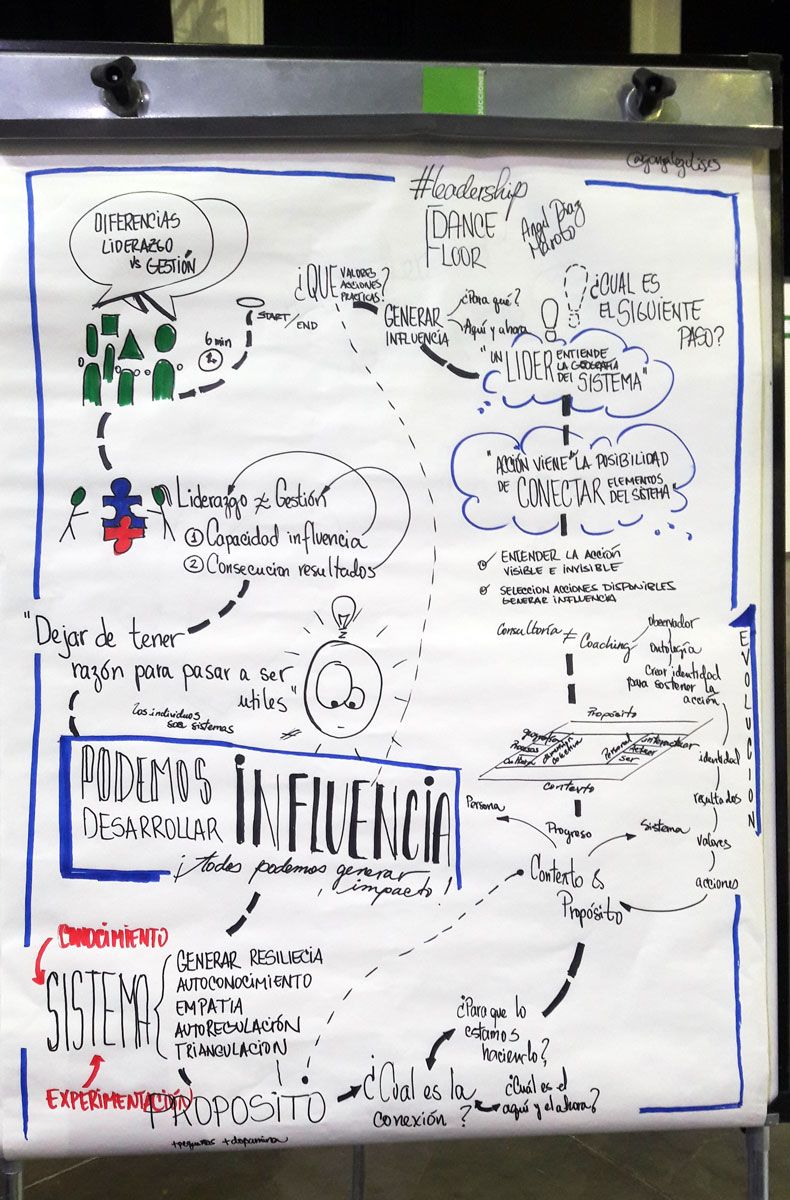 UCCIONES
@gonzalezulises
#leadership
DANCE
FLOOR
Angel Diaz
Maroto
DIFERENCIAS
LIDERAZGO
VS GESTIÓN
6 min
START/END
¿QUE VALORES ACCIONES PRACTICAS?
GENERAR
INFLUENCIA
¿Para qué?
Aquí y ahora
¿CUAL ES
EL SIGUIENTE
PASO?
"UN LIDER ENTIENDE
LA GEOGRAFIA
DEL SISTEMA"
"ACCIÓN VIENE DE LA POSIBILIDAD
DE CONECTAR ELEMENTOS
DEL SISTEMA"
ENTENDER LA ACCIÓN
VISIBLE E INVISIBLE
SELECCION ACCIONES DISPONIBLES
GENERAR INFLUENCIA
Liderazgo ≠ Gestión
① Capacidad influencia
② Consecucion resultados
"Dejar de tener
razón para pasar a ser
utiles"
Los individuos
son sistemas
PODEMOS
DESARROLLAR
INFLUENCIA
¡todos podemos generar
impacto!
Consultoría ≠ Coaching
Observador
Ontología
Crear identidad
para sostener la
acción
identidad
resultados
valores
acciones
EVOLUCION
Propósito
Procesos
Cultura
Personal
interactuar
Actuar
ser
contexto
Persona
Progreso
Sistema
Contexto &
Propósito
CONOCIMIENTO
SISTEMA
EXPERIMENTACIÓN
GENERAR RESILIECIA
AUTOCONOCIMIENTO
EMPATIA
AUTOREGULACIÓN
TRIANGULACION
PROPOSITO
+pequeños +dopamina
¿Cual es la
conexión?
¿Para que lo
estamos
haciendo?
¿Cuál es el
aquí y el ahora?